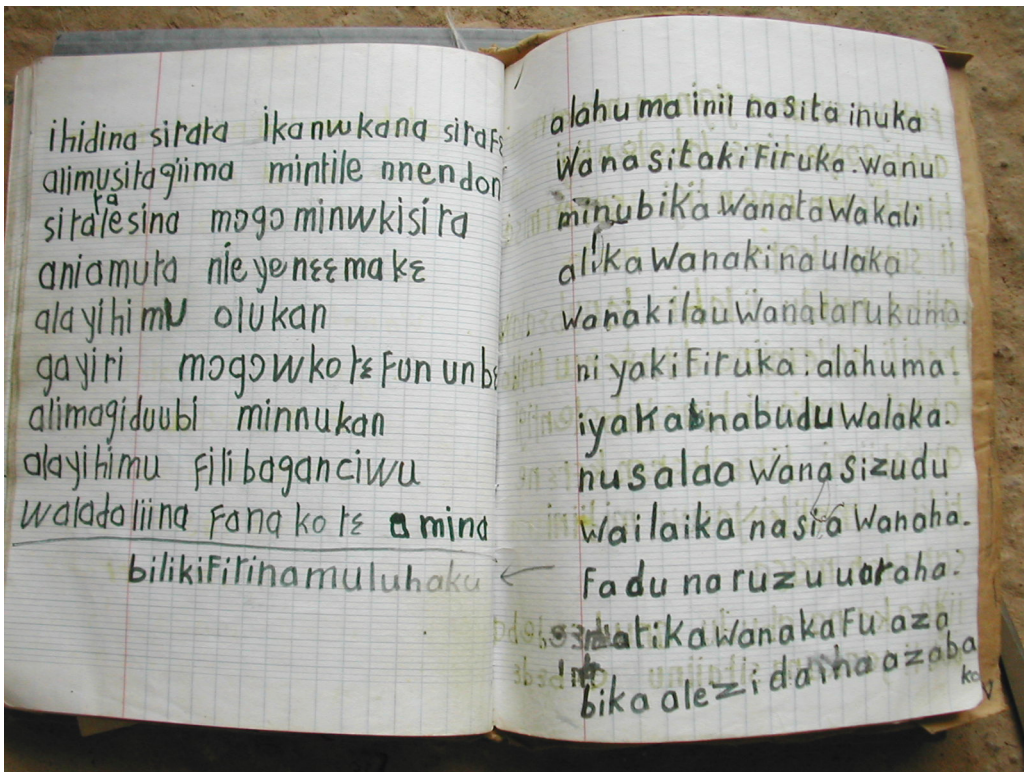 ihidina sirata ikanwkana siraFɛ
alimusitagiima mintile nnendon
ra
siralesina mɔgɔminwkisira
aniamuta nleyenɛɛmakɛ
alayihimu olukan
gayiri mɔgɔwkotɛFununbɛ
alimagiduubi minnukan
alayihimu Filibaganciwu
waladaliina Fanakotɛ amina
bilikiFirinamuluhaku
alahuma inii nasita inuka
wanasitakiFiruka.wanu
minubika wanatawakali
alika wanakinaulaka
wanakilauwanatarukuma.
ni yakiFiruka.alahuma.
iyaka nabudu walaka.
nusalaa wanasizudu
wailaika nasia wanaha.
Fadu naruzu uaraha.
matika wanakaFu aza
bika alezidaiha azaba
ko